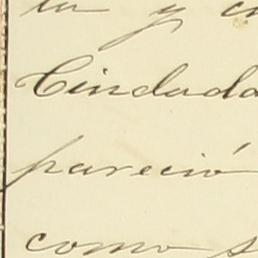 la y c
Ciudada
pareció
como s